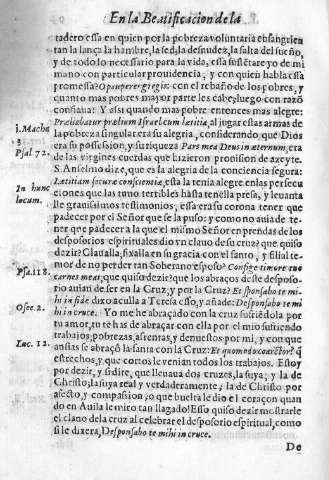 En la Beatificacion de la
tadero essa en quien por la pobreza voluntaria ensangrien
tan la lança la hambre, la sed, la desnudez, la falta del sueño,
y de todo lo necessario para la vida, essa sustētare yo de mi
mano con particular prouidencia, y con quien habla essa
promessa? O pauper grex gregis: con el rebaño de los pobres, y
quanto mas pobres mayor parte les cabe; luego con razō
confiana: Y assi quando mas pobre entonces mas alegre:
Præliabatur prælium Israel cum lætitia, al jugar essas armas de
1. Mach.
3
la pobreza singular era su alegria, considerando, que Dios
Psal 72.
era su possession, y su riqueza Pars mea Deus in æternum, era
de las virgines cuerdas que hizieron prouision de azeyte.
S. Anselmo dize, que es la alegria de la conciencia segura:
In hunc
locum.
Lætitiam securæ conscientiæ, esta la tenia alegre en las persecu
ciones que las tuuo terribles hasta tenella presa, y leuanta
lle grauissimos testimonios; essa era su corona tener que
padecer por el Señor que se la puso: y como no auia de te-
ner que padecer a la que el mismo Señor en prendas de los
desposorios espirituales dio vn clauo de su cruz? que quiso
dezir? Claualla, fixalla en su gracia con el santo, y filial te-
mor de no perder tan Soberano esposo? Confige timore tuo
Psa. 118.
carnes meas, que quiso dezir? que los abraços deste desposo-
rio auian de ser en la Cruz, y por la Cruz? Et sponsabo te mi-
hi in fide dixo aculla a Teresa esso, y añade: Desponsabo te mi-
Osee. 2.
hi in cruce. Yo me he abraçado con la cruz sufriēdola por
tu amor, tu te has de abraçar con ella por el mio sufriendo
trabajos, pobrezas, afrentas, y denuestos por mi, y con que
Luc. 12.
ansias se abraçò la santa con la Cruz: Et quomodo coarctor? q̃
estrechos, y que cortos le venian todos los trabajos. Estoy
por dezir, y si dire, que lleuaua dos cruzes, la suya, y la de
Christo, la suya real y verdaderamente, la de Christo por
afecto, y compassion, o que buelta le dio el coraçon quan
do en Auila le miro tan llagado! Esso quiso dezir mostrarle
el clauo de la cruz al celebrar el desposorio espiritual, como
si le dixera, Desponsabo te mihi in cruce.
De